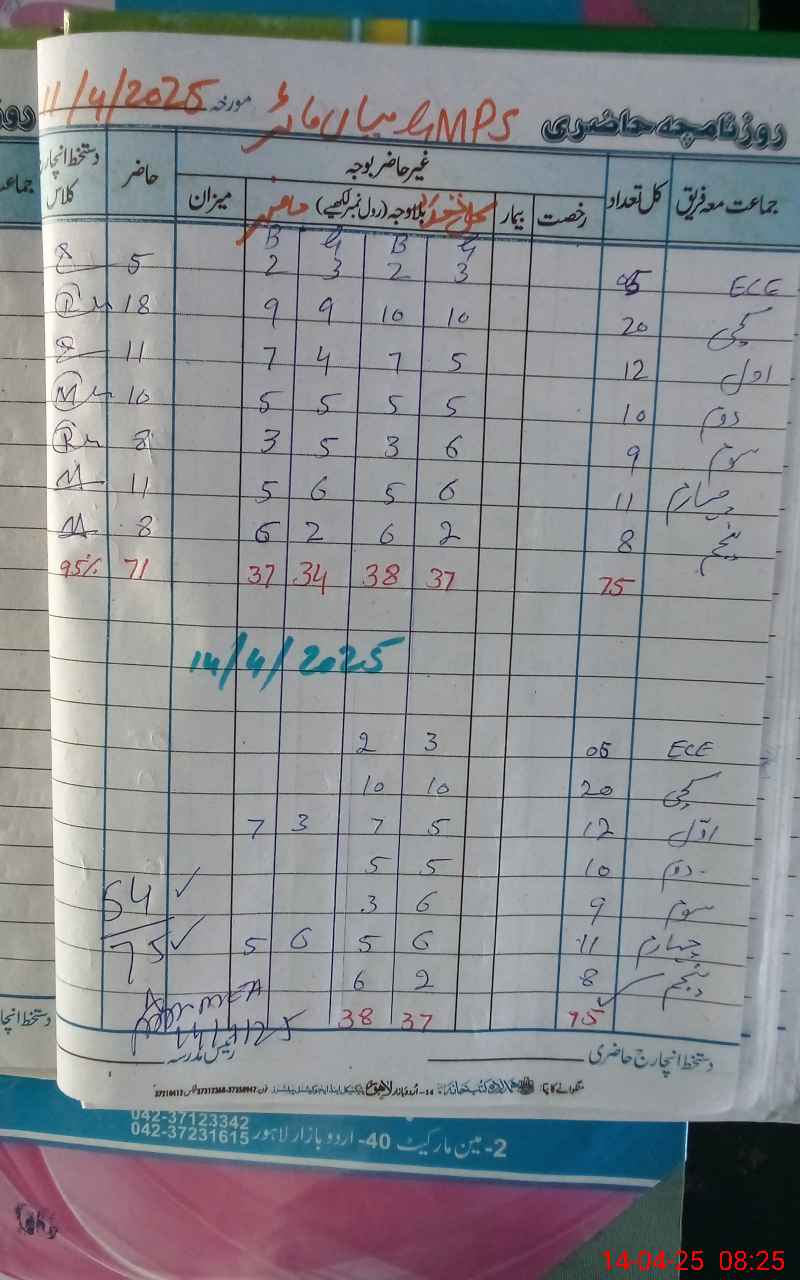 روزنامچہ حاضری GMPS میاں مورخہ 11/4/2025
جماعت معہ فریق کل تعداد غیر حاضر بوجہ حاضر دستخط انچارج کلاس
رخصت بیمار بلاوجہ (رول نمبر لکھیے) حاضر میزان
B G B G
ECE 05 3 2 3 2 5
کچی 20 10 10 9 9 18
اول 12 5 7 4 7 11
دوم 10 5 5 5 5 10
سوم 9 6 3 5 3 8
چہارم 11 6 5 6 5 11
پنجم 8 2 6 2 6 8
75 37 38 34 37 71 95%
14/4/2025
ECE 05 3 2
کچی 20 10 10
اوّل 12 5 7 3 7
دوم 10 5 5
سوم 9 6 3 64
چہارم 11 6 5 6 5 75
پنجم 8 2 6
75 37 38
MEA
دستخط انچارج حاضری رئیس مدرسہ
042-37123342
2- مین مارکیٹ 40- اردو بازار لاہور 042-37231615
14-04-25 08:25